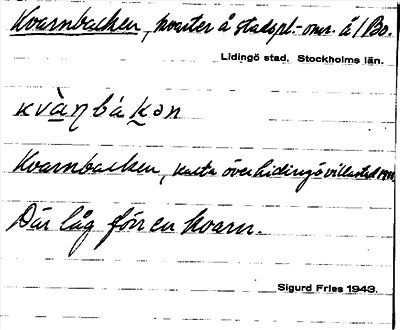 Kvarnbacken, kvarter å stadspl.-omr. å 1 Bo.
Lidingö stad. Stockholms län.
kvàɳbákən
Kvarnbacken, karta över Lidingö villastad
Där låg förr en kvarn.
Sigurd Fries 1943.